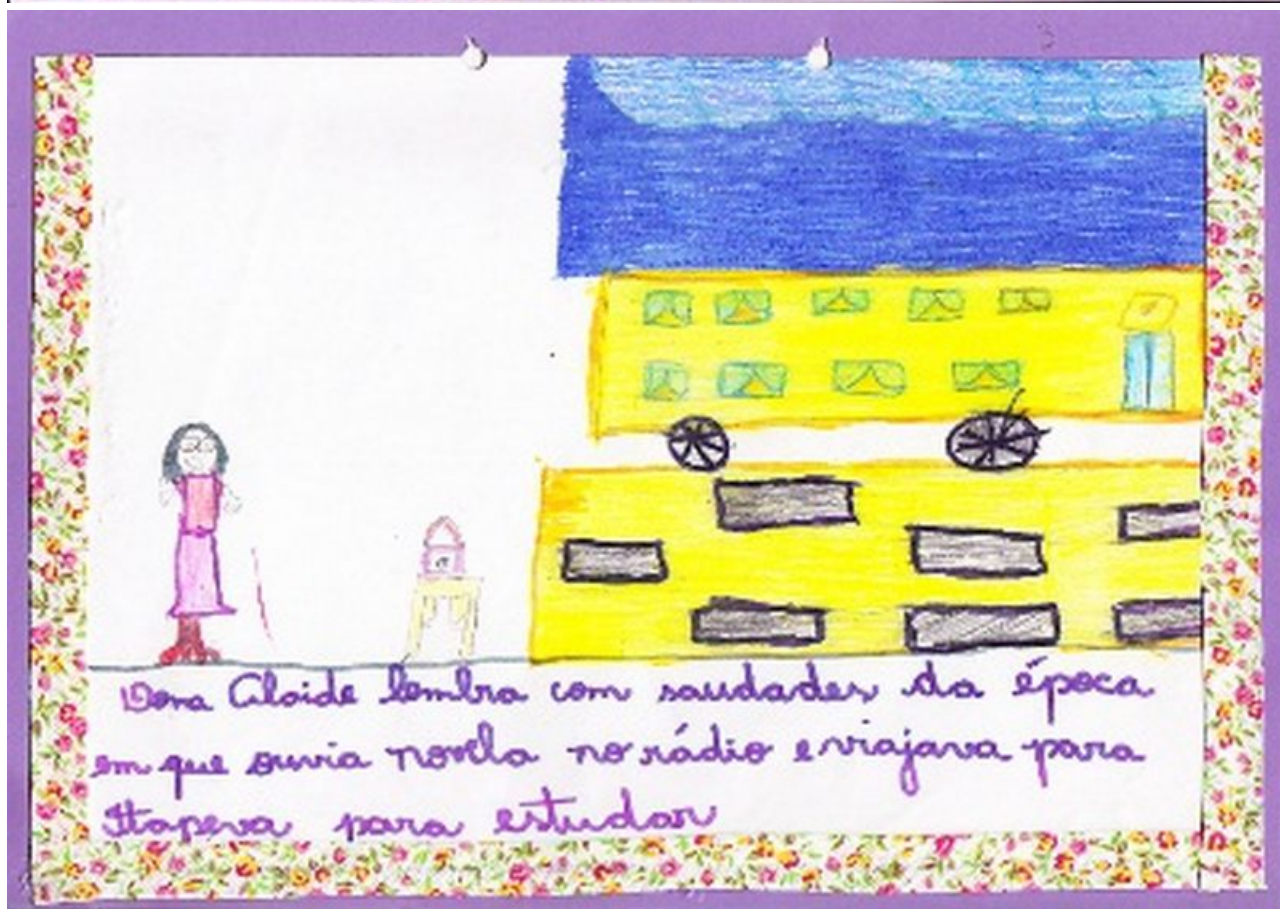 Dona Cloide lembra com saudades da época
em que ouvia novela no rádio e viajava para
Itapeva para estudar